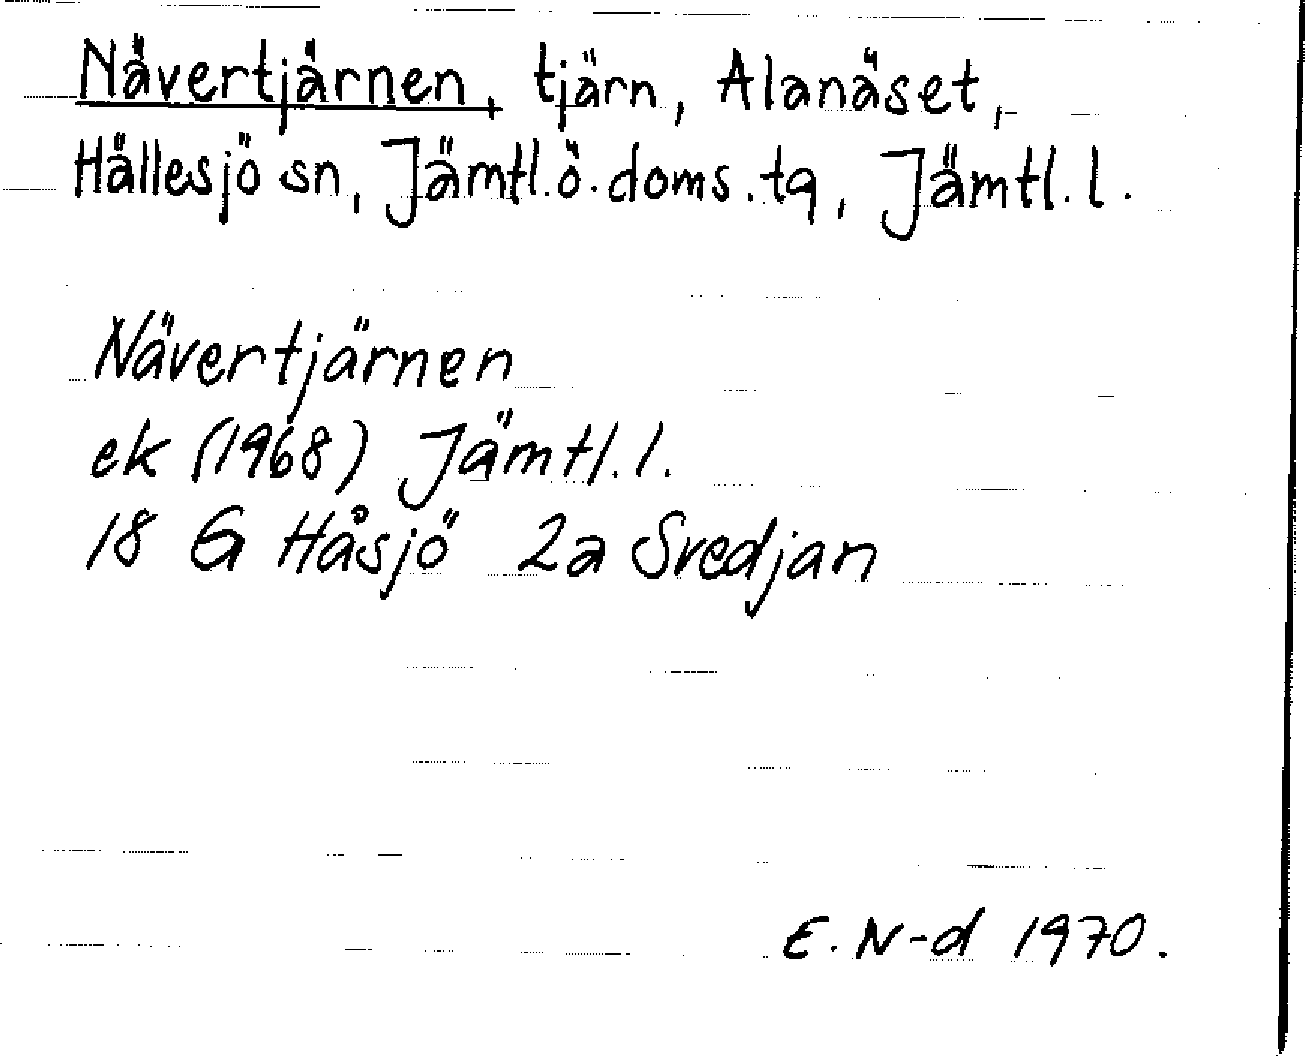 Nävertjärnen, tjärn, Alanäset,
Hällesjö sn, Jämtl. ö. doms. tq, Jämtl. l.
Nävertjärnen
ek (1968) Jämtl. l.
18 G Håsjö 2a Svedjan
E. N-d 1970.